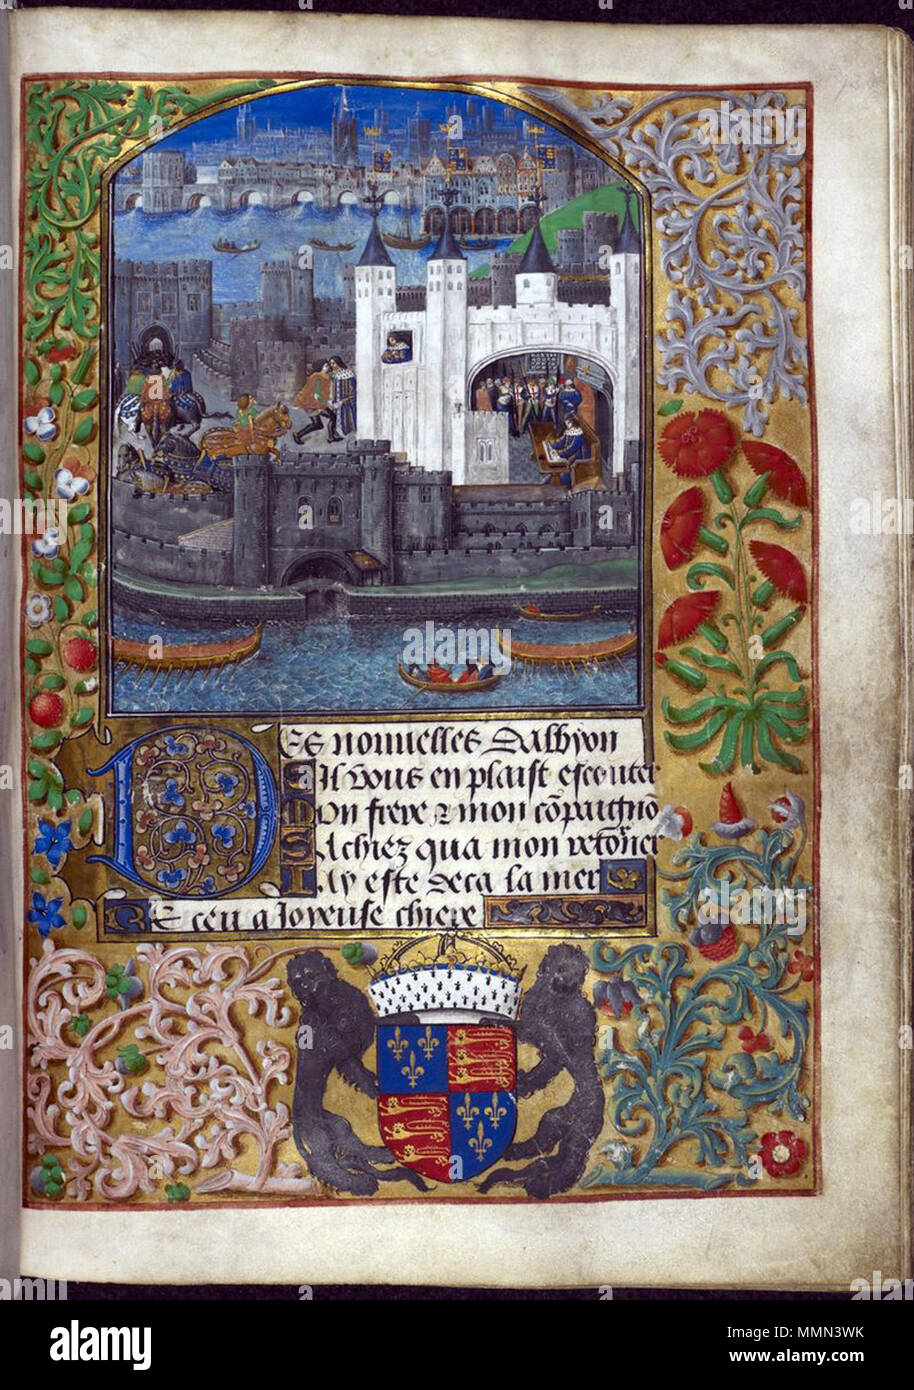 Des nouuelles dalbyon
Sil vous en plaist escouter
Mon frere & mon cōpaignō
Sachiez qua mon retōrner
Iay este deca la mer
Receu a Joyeuse chiere
alamy
alamy
Image ID: MMN3WK
www.alamy.com